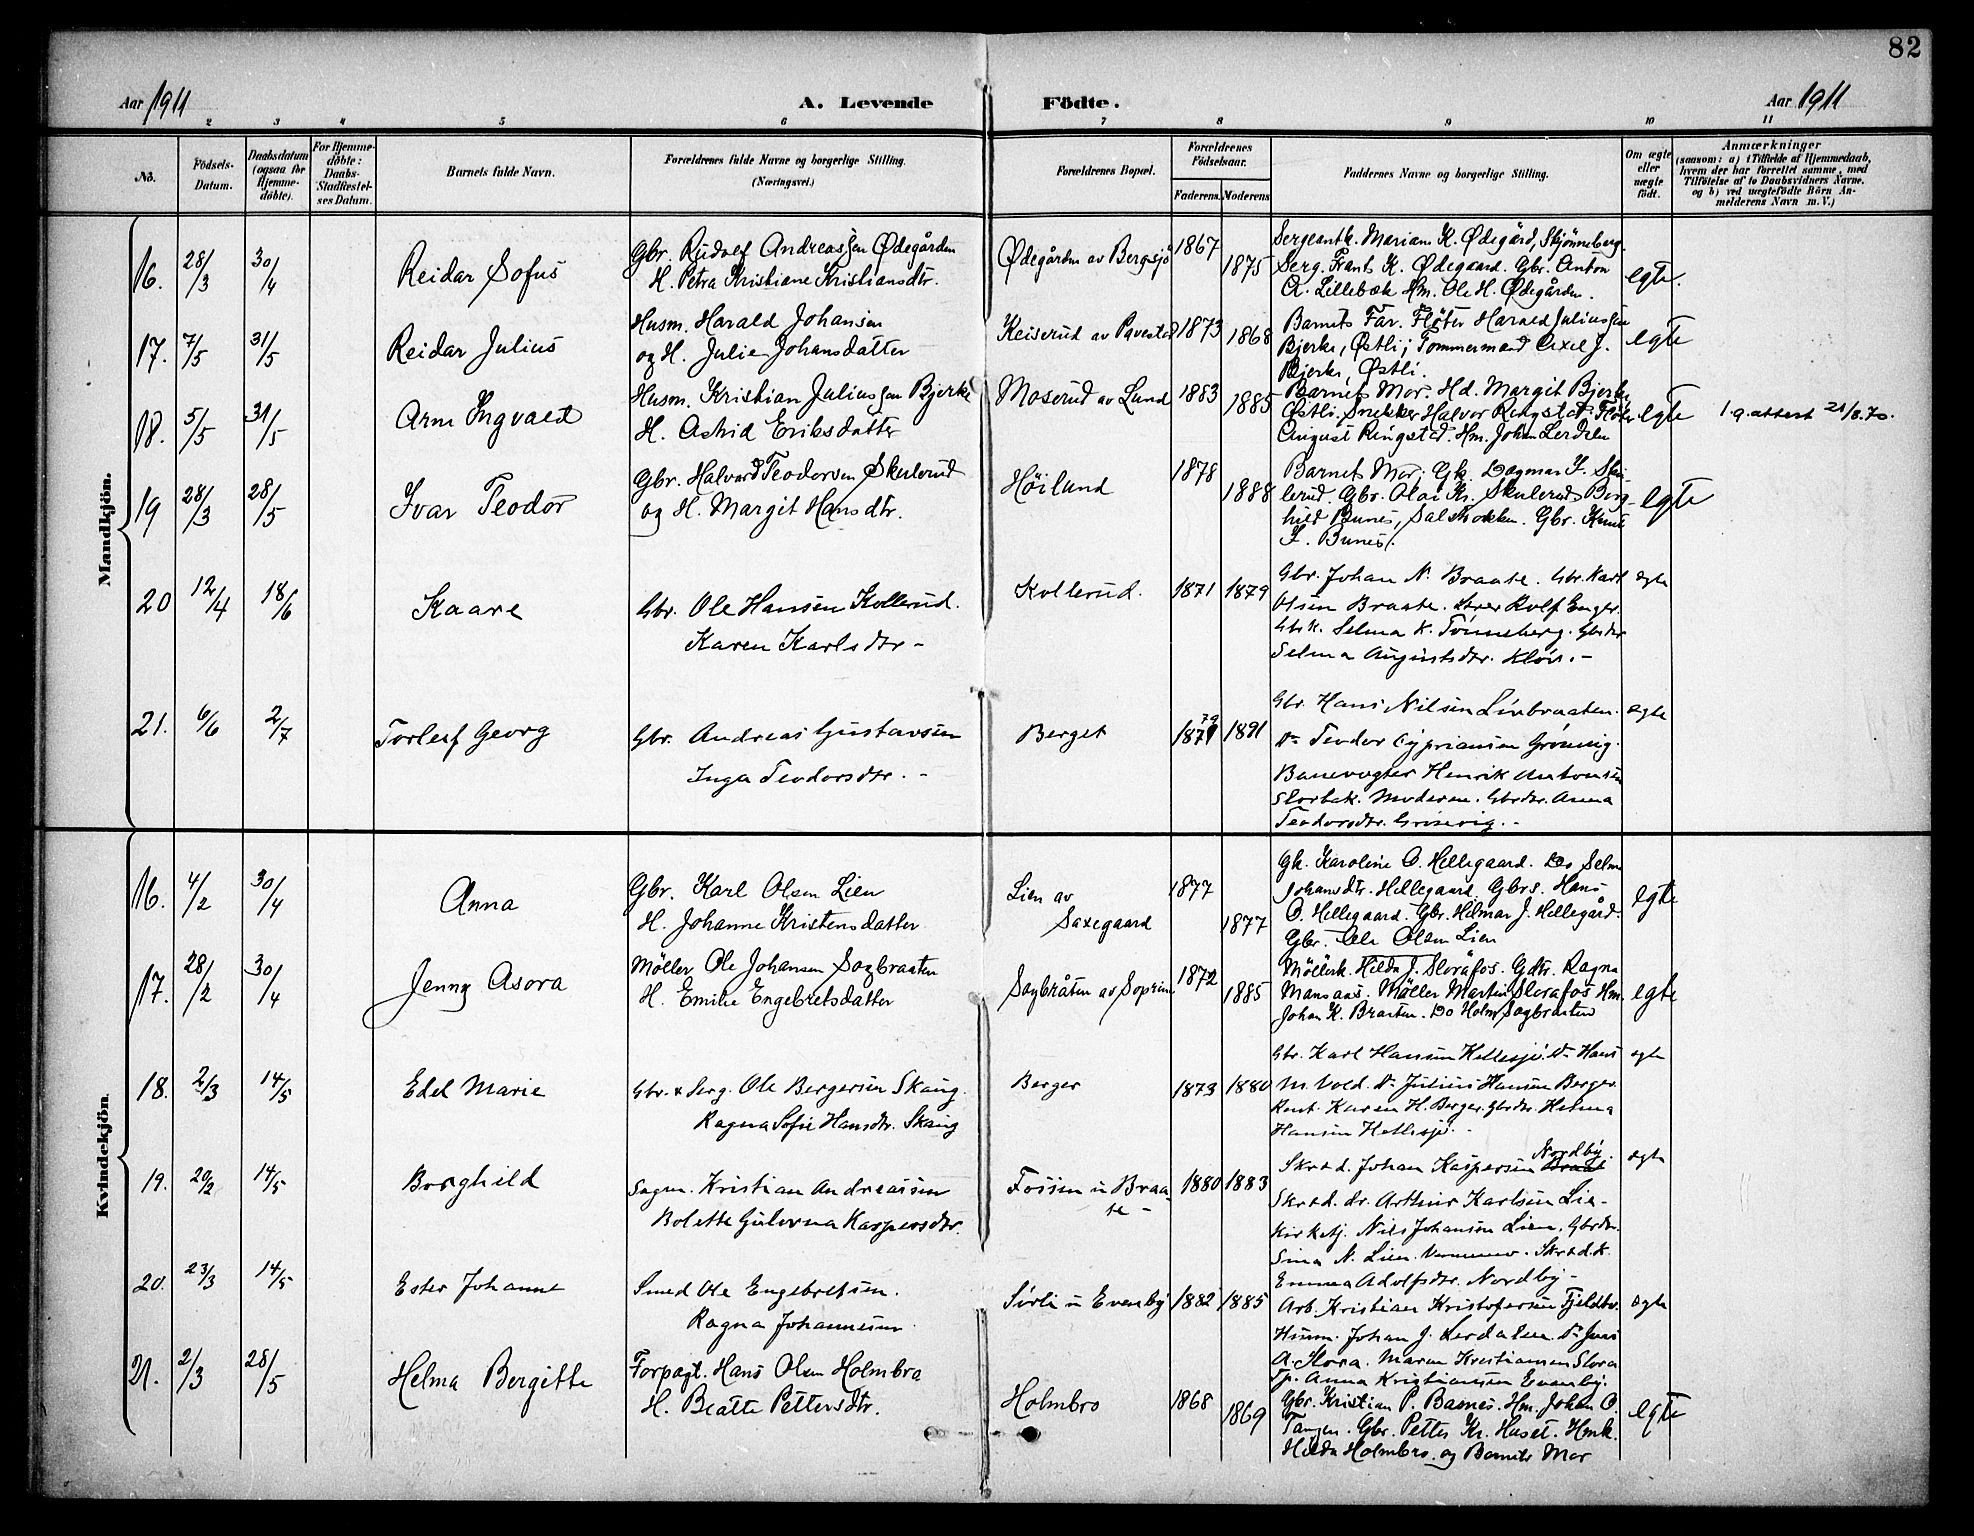 82
Aar 1911 A. Levende Födte. Aar 1911
2 3 4 5 6 7 8 9 10 11
No. Födsels-Datum. Daabsdatum (ogsaa for Hjemme-döbte). For Hjemme-döbte: Daabs-Stadfæstel-ses Datum. Barnets fulde Navn. Forældrenes fulde Navne og borgerlige Stilling. (Næringsvei.) Forældrenes Bopæl. Forældrenes Födselsaar. Faderens. Moderens. Faddernes Navne og borgerlige Stilling. Om ægte eller uægte födt. Anmærkninger (saasom: a) i Tilfælde af Hjemmedaab, hvem der har forrettet samme, med Tilföielse af to Daabsvidners Navne, og b) ved uægtefödte Börn An-melderens Navn m. V.)
Mandkjön.
16. 28/3 30/4 Reidar Sofus
Gbr. Rudolf Andreassen Ødegården
H. Petra Kristiane Kristiansdtr.
Ødegården av Bergsjö 1867 1875
Sergeantk. Mariam K. Ødegård, Skjönneberg.
Serg. Frants K. Ødegaard. Gbr. Anton
A. Lillebæk Hm. Ole H. Ødegården.
egte.
17. 7/5 31/5 Reidar Julius
Husm. Harald Johansen
og H. Julie Johansdatter
Keiserud av Pavestad 1873 1868
Barnets Far. Flöter Harald Juliussen
Bjerke, Østli; Tommermand Axel J.
Bjerke, Østli.
egte
18. 5/5 31/5 Arne Ingvald
Husm. Kristian Juliussen Bjerke
H. Astrid Eriksdatter
Moserud av Lund 1883 1885
Barnets Mor. Hd. Margit Bjerke
Østli. Snekker Halvor Ringstad. Flöter
August Ringstad. Hm. Johan Lerdalen
egte
l.g. attest 21/8.70.
19 28/3 28/5 Ivar Teodor
Gbr. Halvard Teodorsen Skulerud
og H. Margit Hansdtr.
Höilund 1878 1888
Barnets Mor; Gk. Dagmar I. Sku-
lerud. Gbr. Olai Kr. Skulerud. Borg-
hild Bunes, Gbr. Knut
I. Bunes.
egte
20 12/4 18/6 Kaare
Gbr. Ole Hansen Kollerud.
Karen Karlsdtr -
Kollerud. 1871 1879
Gbr. Johan N. Braate. Gbr. Karl
Olsen Braate. Rolf Enger.
Gbrk. Selma K. Tönneberg. Gbrdtr
Selma Augustsdtr. Klöv. -
egte
21. 6/6 2/7 Torleif Georg
Gbr. Andreas Gustavsen
Inga Teodorsdtr. -
Berget 1879 1891
Gbr. Hans Nilsen Linbraaten.
Do Teodor Cypriansen Grönvig.
Banevogter Henrik Antonsen
Slorbak. Moderen. Gbrdtr. Anna
Teodorsdtr. Grönvig. -
egte
Kvindekjön.
16. 4/2 30/4 Anna
Gbr. Karl Olsen Lien
H. Johanne Kristensdatter
Lien av
Saxegaard 1877 1877
Gk. Karoline O. Hellegaard. Do Selma
Johansdtr. Hellegaard Gbrs. Hans
O. Hellegaard. Gbr. Hilmar J. Hellegård.
Gbr. Ole Olsen Lien
egte
17. 28/2 30/4 Jenny Asora
Möller Ole Johansen Sagbraaten
H. Emilie Engebretsdatter
Sagbråten av Soprim 1872 1885
Möllerk. Hilda J. Sloråfos. Gdtr. Ragna
Mansaas. Möller Martin Sloråfos Hm.
Johan K. Braaten. Do Holm Sagbraaten
egte
18. 2/3 14/5 Edel Marie
Gbr. & Serg. Ole Bergersen Skaug.
Ragna Sofie Hansdtr. Skaug
Berger 1873 1880
Gbr. Karl Hansen Hellesjö. Do Hans
M. Vold. Do Julius Hansen Berger.
Karen H. Berger. Gbrdtr. Helma
Hansen Hellesjö. -
egte
19. 20/2 14/5 Borghild
Sagm. Kristian Andreassen
Bolette Gulovna Kaspersdtr.
Fossen u Braa-
te - 1880 1883
Skræd. Johan Kaspersen Nordby.
Skræd. dr. Arthur Karlsen Lie -
Kirketj. Nils Johansen Lien. Gbrdtr.
Sina N. Lien. Skræd.k.
Emma Adolfsdtr. Nordby -
egte
20. 23/3 14/5 Ester Johanne
Smed Ole Engebretsen.
Ragna Johannesen.
Sörli u Evenby 1882 1885
Arb. Kristian Kristofersen Fjeldbr.
Husm. Johan J. Lerdalen Do Jens
A. Slora. Maren Kristiansen Slora
Tp. Anna Kristiansen Evenby.
egte
21. 2/3 28/5 Helma Bergitte
Forpagt. Hans Olsen Holmbro
H. Beatte Pettersdtr.
Holmbro 1868 1869
Gbr. Kristian P. Basnes. Hm. Johan O.
Tangen. Gbr. Petter Kr. Huset. Hmk.
Hilda Holmbro og Barnets Mor
egte